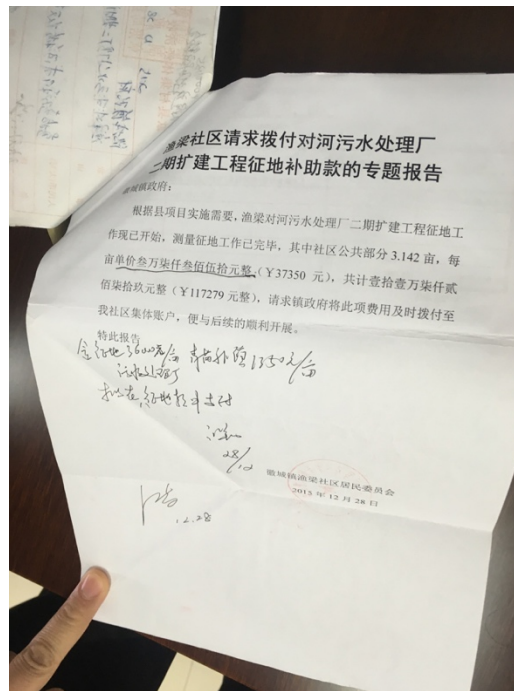 渔梁社区请求拨付对河污水处理厂
二期扩建工程征地补助款的专题报告
徽城镇政府：
根据县项目实施需要，渔梁对河污水处理厂二期扩建工程征地工
作现已开始，测量征地工作已完毕，其中社区公共部分3.142亩，每
亩单价叁万柒仟叁佰伍拾元整，（￥37350 元），共计壹拾壹万柒仟贰
佰柒拾玖元整（￥117279元整），请求镇政府将此项费用及时拨付至
我社区集体账户，便与后续的顺利开展。
特此报告
征地36000元/亩 青苗补偿1350元/亩
污水处理厂
拟在征地款中支付
28/12
徽城镇渔梁社区居民委员会
2015 年 12 月 28 日
12.28